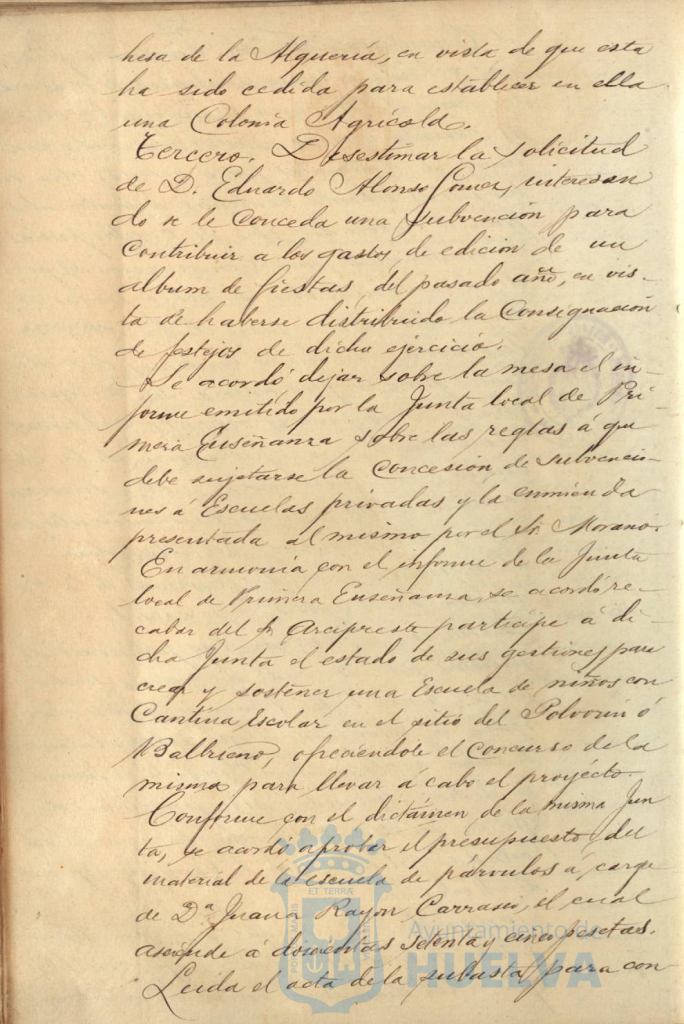 hesa de la Alqueria, en vista de que esta
ha sido cedida para establecer en ella
una Colonia Agricola.
Tercero. Desestimar la solicitud
de D. Eduardo Alonso Gomez, interesan
do se le conceda una subvención para
contribuir á los gastos de edicion de un
album de fiestas, del pasado año, en vis-
ta de haberse distribuido la Consignación
de festejos de dicho ejercicio.
Se acordó dejar sobre la mesa el in-
forme emitido por la Junta local de Pri-
mera Enseñanza sobre las reglas á que
debe sujetarse la concesión de subvencio-
nes á Escuelas privadas y la enmienda
presentada al mismo por el Sr. Morano.
En armonia con el informe de la Junta
local de Primera Enseñanza, se acordó re-
cabar del Sr. Arcipreste participe á di-
cha Junta el estado de sus gestiones para
crear y sostener una Escuela de niños con
Cantina Escolar en el sitio del Polvorin ó
Balbueno, ofreciendole el concurso de la
misma para llevar á cabo el proyecto.
Conforme con el dictámen de la misma Jun
ta, se acordó aprobar el presupuesto del
material de la escuela de párvulos á cargo
de Dª Juana Rayon Carrasco, el cual
asciende á doscientas setenta y cinco pesetas.
Leida el acta de la subasta para con
Ayuntamiento de
HUELVA